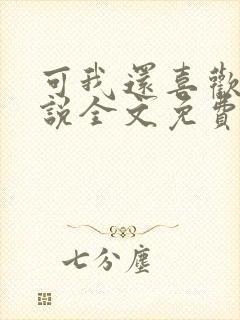 可我還喜歡
說全文免費
七分塵